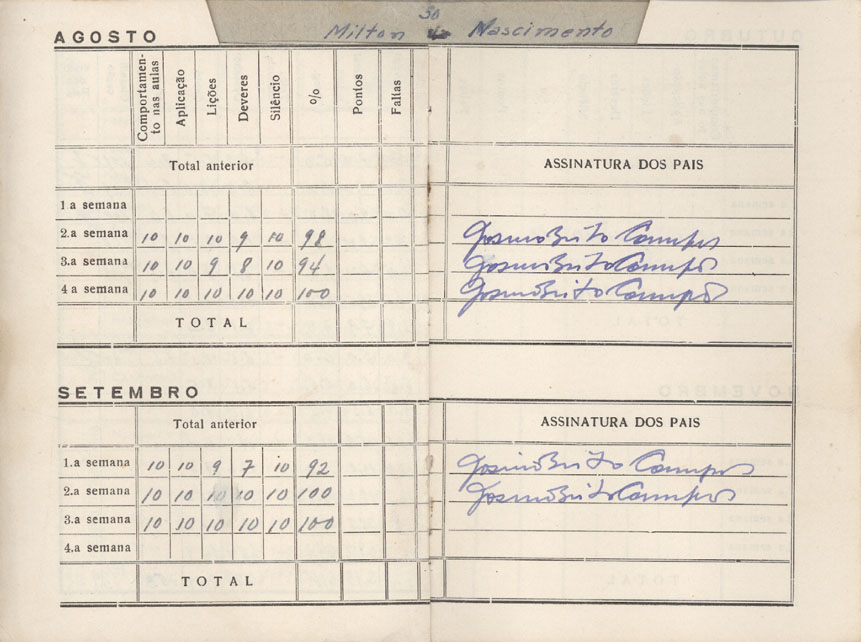 30
Milton do Nascimento
AGOSTO
Comportamen-
to nas aulas
Aplicação
Lições
Deveres
Silêncio
%
Pontos
Faltas
Total anterior
ASSINATURA DOS PAIS
1 a semana
2.a semana 10 10 10 9 10 98 Josino Brito Campos
3.a semana 10 10 9 8 10 94 Josino Brito Campos
4 a semana 10 10 10 10 10 100 Josino Brito Campos
TOTAL
SETEMBRO
Total anterior
ASSINATURA DOS PAIS
1.a semana 10 10 9 7 10 92 Josino Brito Campos
2.a semana 10 10 10 10 10 100 Josino Brito Campos
3.a semana 10 10 10 10 10 100
4.a semana
TOTAL